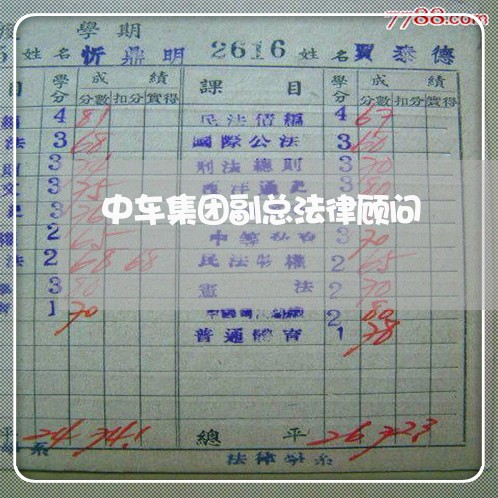 7788.com
學期
5 姓名 忻鼎明 2616 姓名 賈泰德
目 學分 成績 課目 學分 成績
分數 扣分 實得 分數 扣分 實得
4 81 民法債編 4 67
法 3 68 國際公法 3 60
3 刑法總則 3 70
3 75 西洋通史 3 80
中车集团副总法律顾问
2 65 3 70
法 2 68 68 民法物權 2 65
3 80 憲法 2 70
1 70 2 80
普通體育 1 78
平 24 74.1 總平 26 72.3
系 法律學系